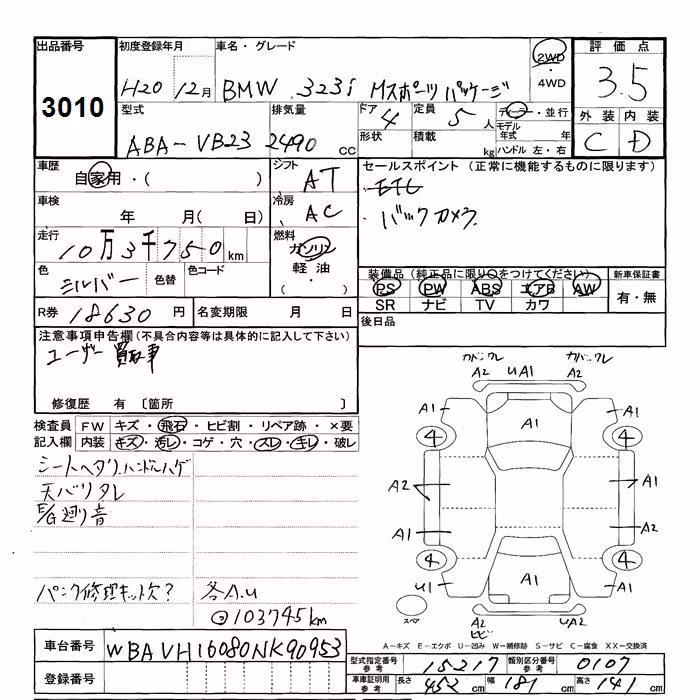 出品番号 初度登録年月 車名・グレード 2WD・4WD 評価点
3010 H20 12月 BMW 323i Mスポーツ パッケージ 3.5
型式 排気量 ドア 定員 ディーラー・並行 外装 内装
ABA-VB23 2490 cc 4 5人 モデル年式 年 C D
形状 積載 kg ハンドル 左・右
車歴 自家用・( ) シフト AT セールスポイント (正常に機能するものに限ります)
ETC
・バックカメラ
車検 年 月( 日) 冷房 AC
走行 10万3千750km 燃料 ガソリン 軽油・( )
色 シルバー 色替 色コード
装備品 (純正品に限り○をつけてください) 新車保証書
PS PW ABS エアB AW 有・無
SR ナビ TV カワ
R券 18630円 名変期限 月 日 後日品
注意事項申告欄(不具合内容等は具体的に記入して下さい)
ユーザー買取車
修復歴 有 〔箇所 〕
検査員 FW キズ・飛石・ヒビ割・リペア跡・×要
記入欄 内装 キズ・汚レ・コゲ・穴・スレ・キレ・破レ
シートヘタリ、ハンドルハゲ
天バリタレ
E/G廻り音
パンク修理キット欠? 各A.U
103745km
カドスレ UA1 カドスレ
A2 A2
A1 A1 A1
4 4
A2 A1
A1 A2
4 4
U1 A1 A1
スペア A2 UA2
ヒビ
A-キズ E-エクボ U-凹み W-補修跡 S-サビ C-腐食 XX-交換済
車台番号 WBAVH16080NK90953
型式指定番号 参考 15217 類別区分番号 参考 0107
登録番号 車庫証明用 参考 長さ 452cm 幅 181cm 高さ 141cm